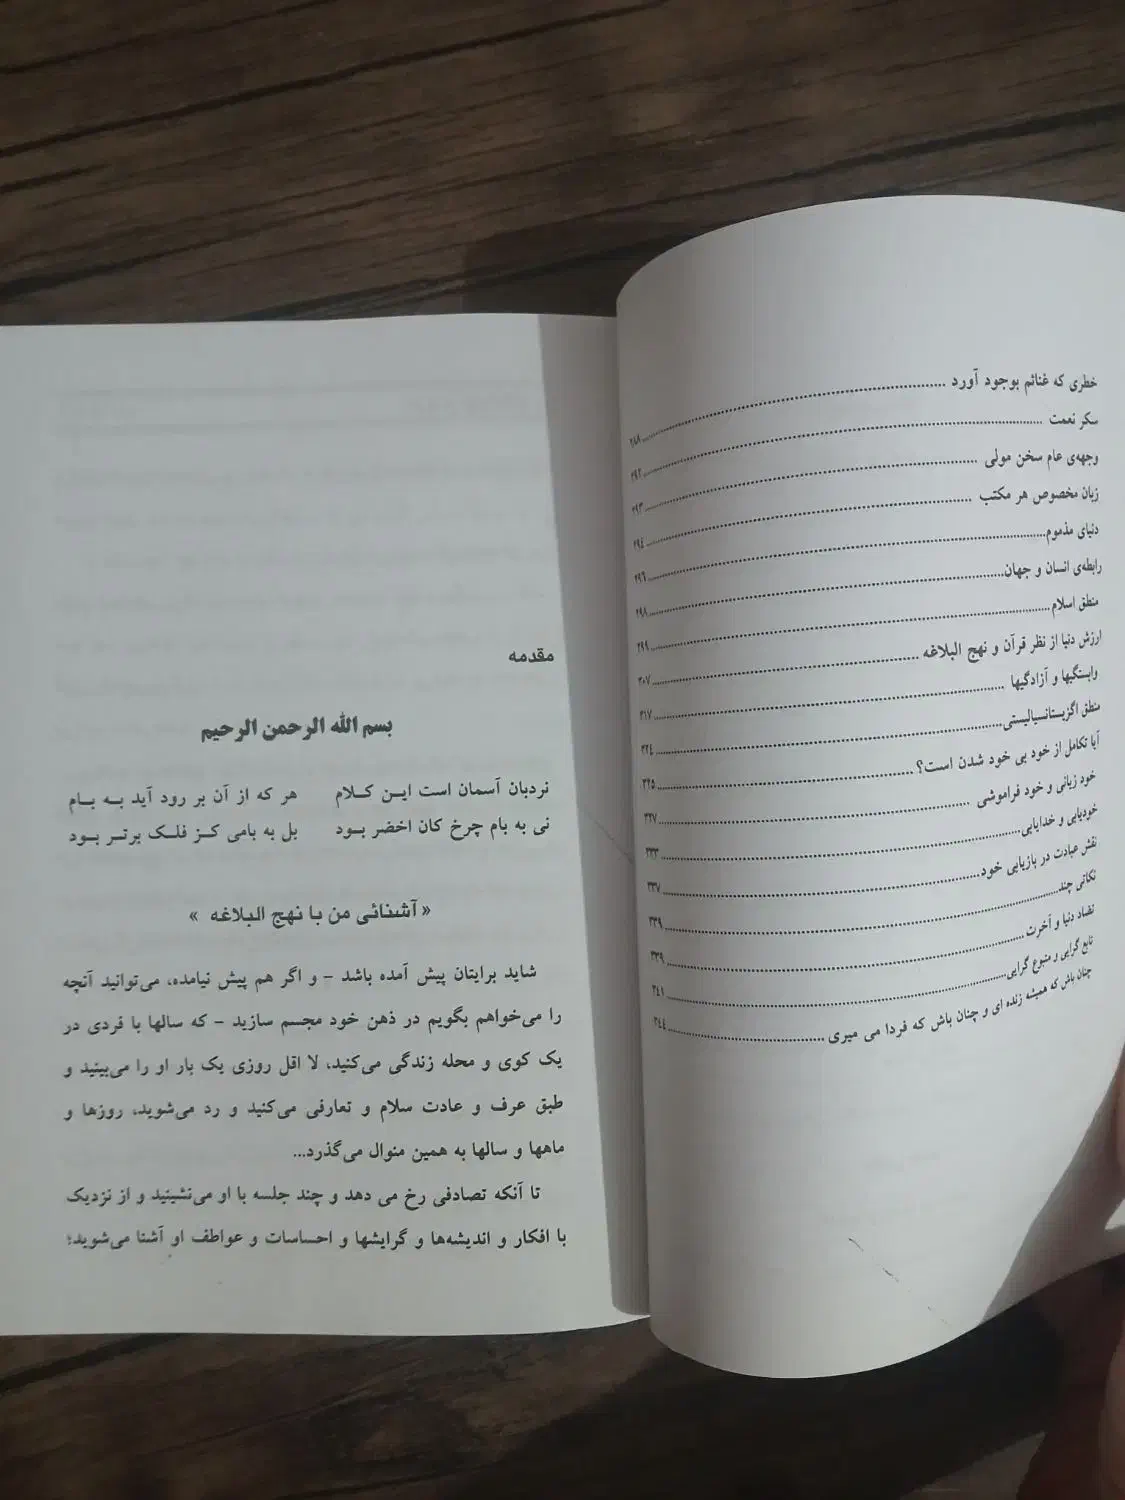 خطری که غنائم بوجود آورد ........ ۲۸۸
سکر نعمت ........ ۲۹۲
وجهه‌ی عام سخن مولی ........ ۲۹۳
زبان مخصوص هر مکتب ........ ۲۹٤
دنیای مذموم ........ ۲۹٦
رابطه‌ی انسان و جهان ........ ۲۹۸
منطق اسلام ........ ۲۹۹
ارزش دنیا از نظر قرآن و نهج البلاغه ........ ۳۰۷
وابستگیها و آزادگیها ........ ۳۱۷
منطق اگزیستانسیالیستی ........ ۳۲٤
آیا تکامل از خود بی خود شدن است؟ ........ ۳۲۵
خود زیانی و خود فراموشی ........ ۳۲۷
خودیابی و خدایابی ........ ۳۳۳
نقش عبادت در بازیابی خود ........ ۳۳۷
نکاتی چند ........ ۳۳۹
تضاد دنیا و آخرت ........ ۳۳۹
تابع گرایی و متبوع گرایی ........ ۳٤۱
چنان باش که همیشه زنده ای و چنان باش که فردا می میری ........ ۳٤٤
مقدمه
بسم الله الرحمن الرحیم
نردبان آسمان است این کلام هر که از آن بر رود آید به بام
نی به بام چرخ کان اخضر بود بل به بامی کز فلک برتر بود
« آشنائی من با نهج البلاغه »
شاید برایتان پیش آمده باشد – و اگر هم پیش نیامده، می‌توانید آنچه
را می‌خواهم بگویم در ذهن خود مجسم سازید – که سالها با فردی در
یک کوی و محله زندگی می‌کنید، لا اقل روزی یک بار او را می‌بینید و
طبق عرف و عادت سلام و تعارفی می‌کنید و رد می‌شوید، روزها و
ماهها و سالها به همین منوال می‌گذرد...
تا آنکه تصادفی رخ می دهد و چند جلسه با او می‌نشینید و از نزدیک
با افکار و اندیشه‌ها و گرایشها و احساسات و عواطف او آشنا می‌شوید؛